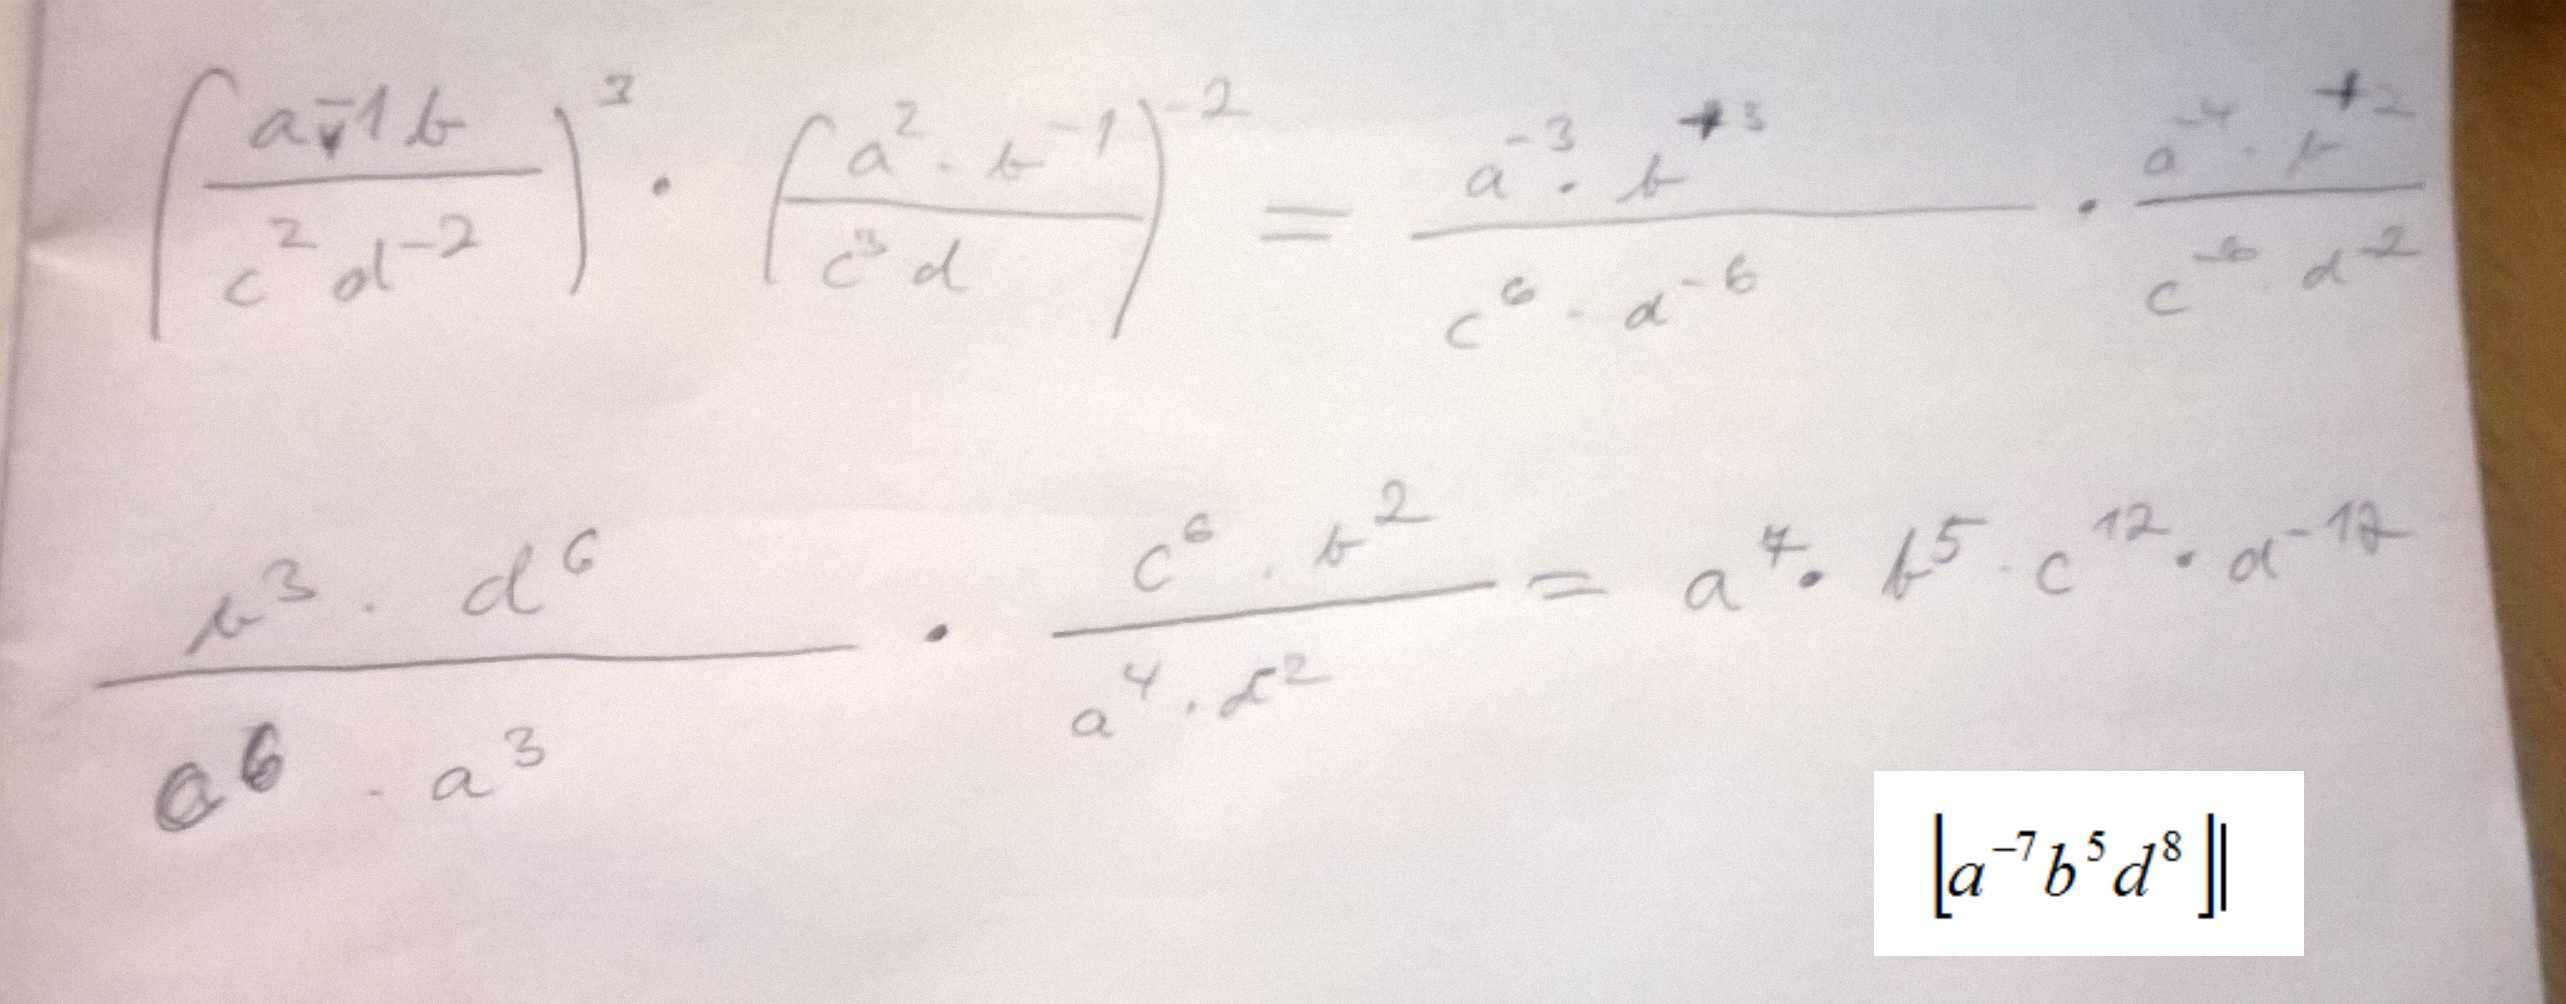 (a⁻¹b / c² d⁻²)³ · (a² · b⁻¹ / c³ d)⁻² = a⁻³ · b⁺³ / c⁶ · d⁻⁶ · a⁻⁴ · b⁺² / c⁻⁶ · d⁻²
b³ · d⁶ / a⁶ · a³ · c⁶ · b² / a⁴ · d² = a⁷ · b⁵ · c¹² · d⁻¹²
⌊a⁻⁷b⁵d⁸⌋|